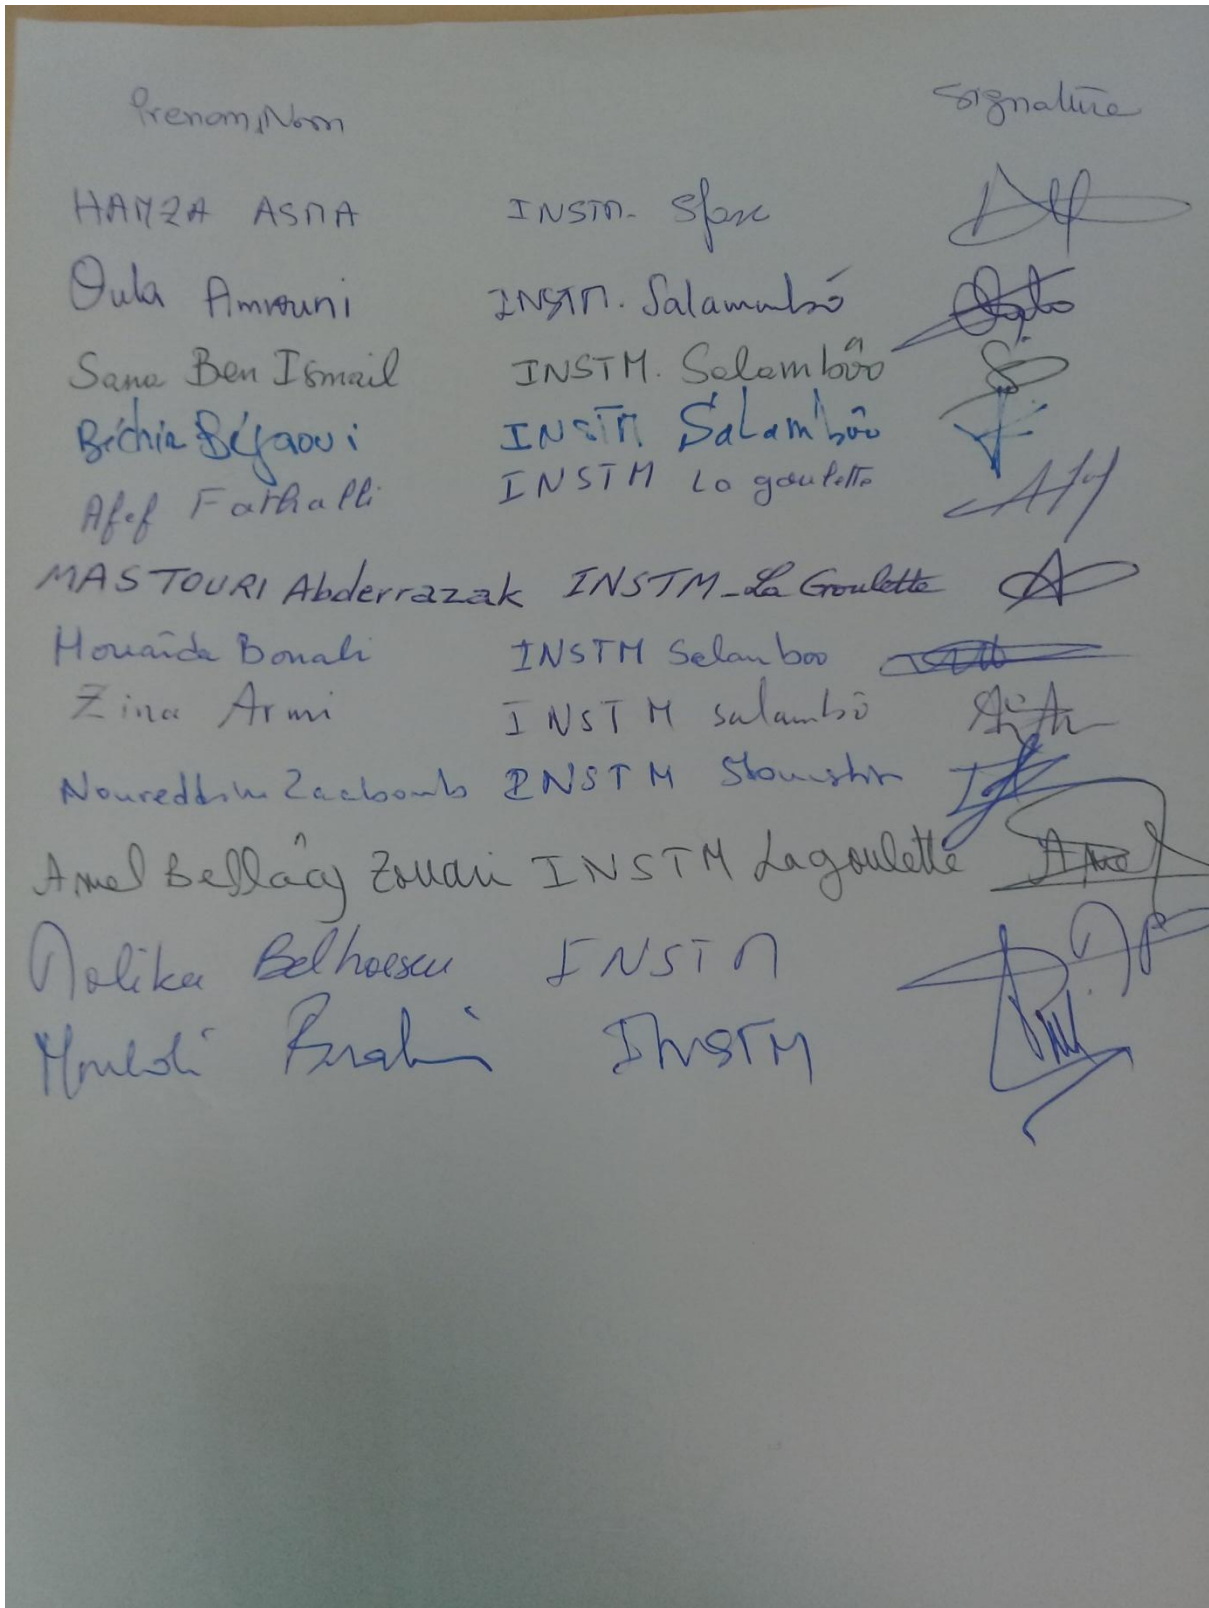 Prenom, Nom Signature
HAMZA ASMA INSTM- Sfax
Oula Amrouni INSTM. Salammbó
Sana Ben Ismail INSTM. Salambôo
Béchir Béjaoui INSTM Salambôo
Afef Fathalli INSTM La goulette
MASTOURI Abderrazak INSTM-La Goulette
Houaïda Bouali INSTM Salamboo
Zina Armi INSTM salambô
Noureddine INSTM
Amel Bellâaj Zouari INSTM Lagoulette
Malika Belhassen INSTM
Mouldi Brahmi INSTM